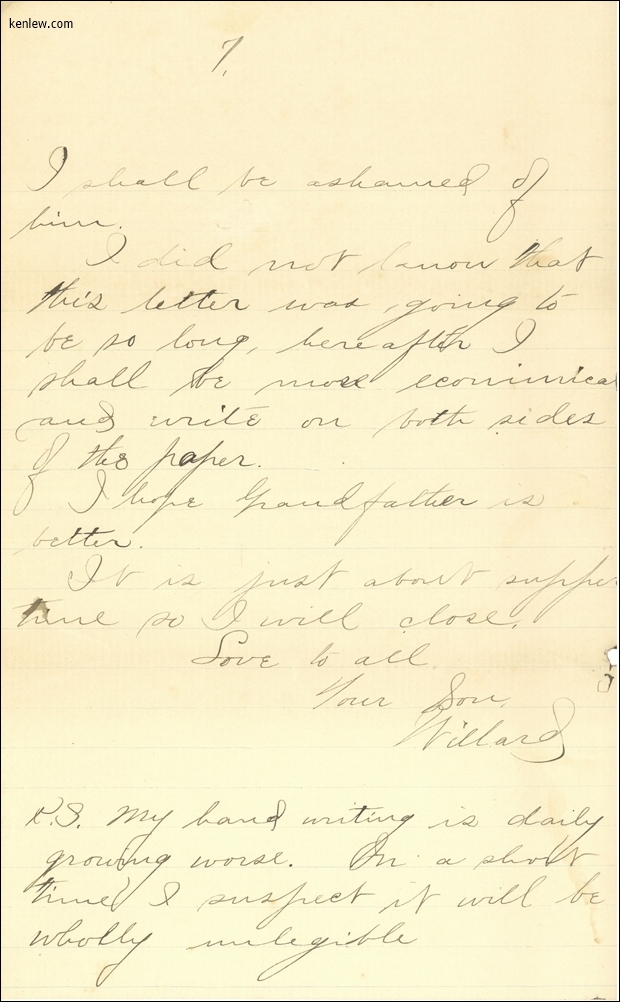 kenlew.com
7.
I shall be ashamed of
him.
I did not know that
this letter was going to
be so long, hereafter I
shall be more econimical
and write on both sides
of the paper.
I hope Grandfather is
better.
It is just about supper
time so I will close.
Love to all.
Your Son,
Willard
P.S. My hand writing is daily
growing worse. In a short
time I suspect it will be
wholly unlegible